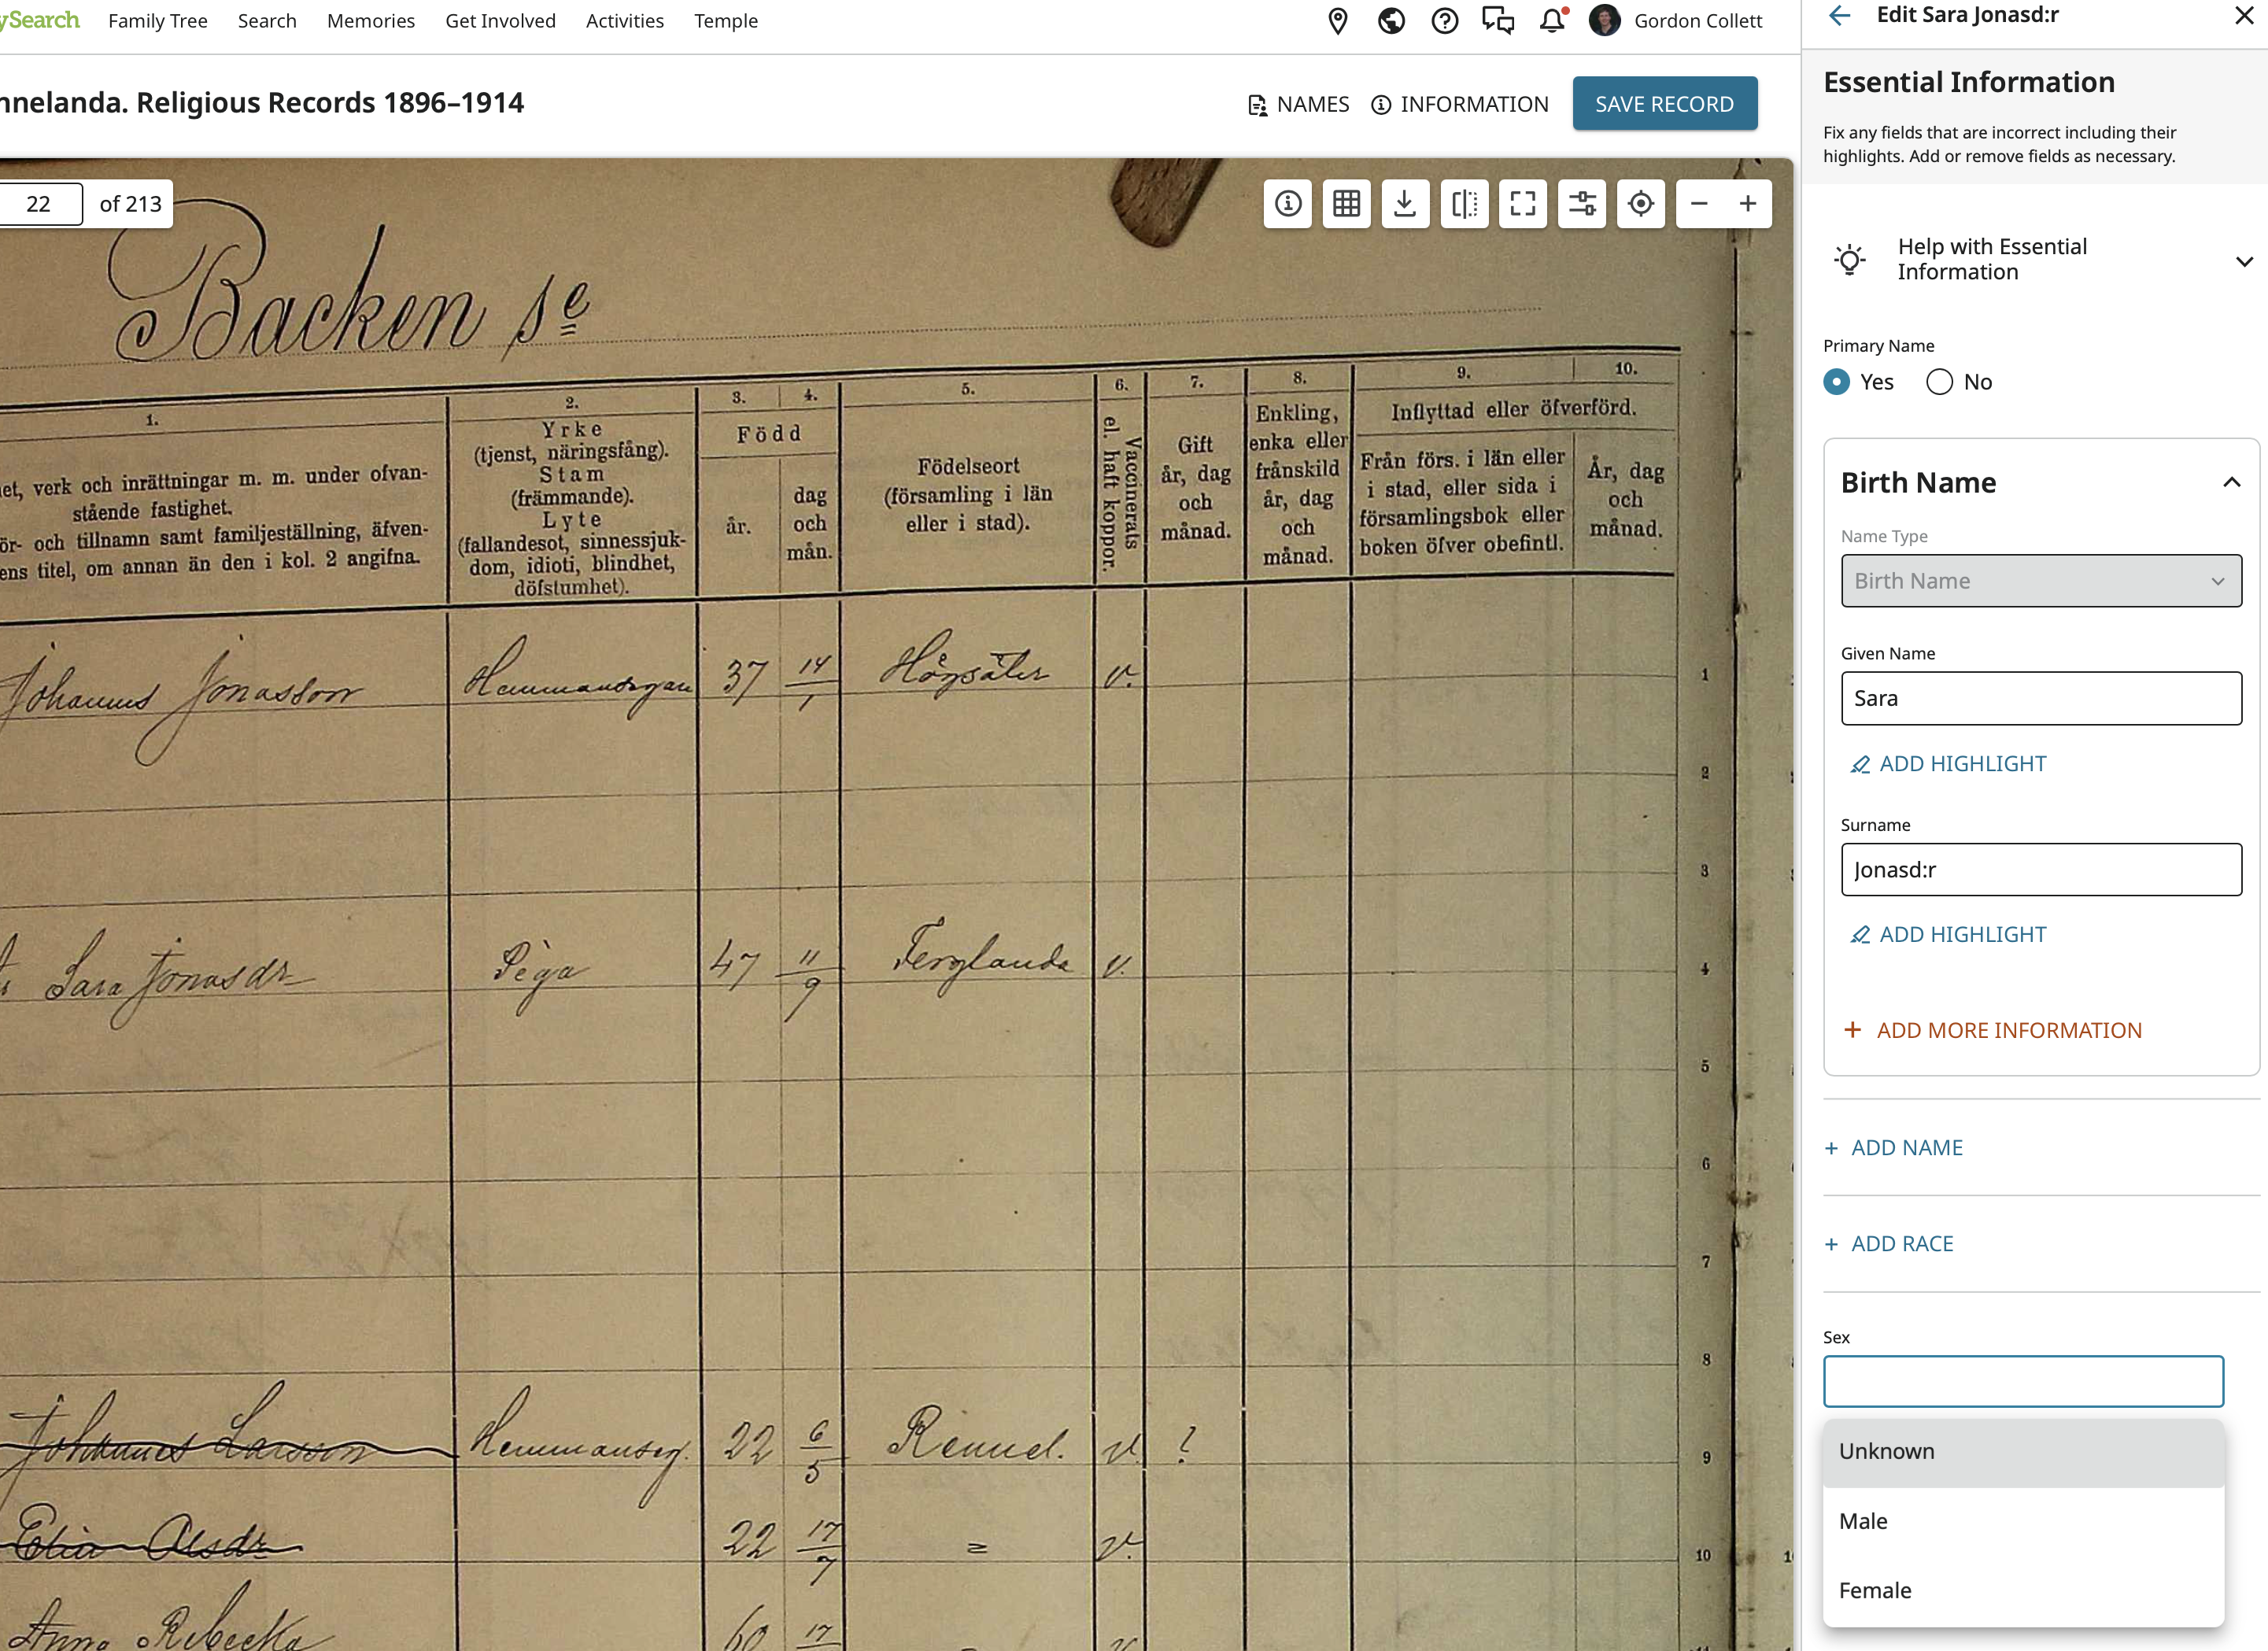 ySearch Family Tree Search Memories Get Involved Activities Temple Gordon Collett
nnelanda. Religious Records 1896–1914 NAMES INFORMATION SAVE RECORD
22 of 213
Backen se
1. 2. 3. 4. 5. 6. 7. 8. 9. 10.
et, verk och inrättningar m. m. under ofvan-
stående fastighet.
ör- och tillnamn samt familjeställning, äfven-
ens titel, om annan än den i kol. 2 angifna.
Yrke
(tjenst, näringsfång).
Stam
(främmande).
Lyte
(fallandesot, sinnessjuk-
dom, idioti, blindhet,
döfstumhet).
Född
år.
dag
och
mån.
Födelseort
(församling i län
eller i stad).
Vaccinerats
el. haft koppor.
Gift
år, dag
och
månad.
Enkling,
enka eller
frånskild
år, dag
och
månad.
Inflyttad eller öfverförd.
Från förs. i län eller
i stad, eller sida i
församlingsbok eller
boken öfver obefintl.
År, dag
och
månad.
Johannes Jonasson Hemmansegan 37 14/1 Högsäter v. 1
2
3
Sara Jonasdr Piga 47 11/9 Ferglanda v. 4
5
6
7
8
Johannes Larsson Hemmanseg. 22 6/5 Rennel. v. ? 9
Olsdr 22 17/7 = v. 10
Anna Rebecka 60 17
Edit Sara Jonasd:r
Essential Information
Fix any fields that are incorrect including their
highlights. Add or remove fields as necessary.
Help with Essential
Information
Primary Name
Yes No
Birth Name
Name Type
Birth Name
Given Name
Sara
ADD HIGHLIGHT
Surname
Jonasd:r
ADD HIGHLIGHT
+ ADD MORE INFORMATION
+ ADD NAME
+ ADD RACE
Sex
Unknown
Male
Female